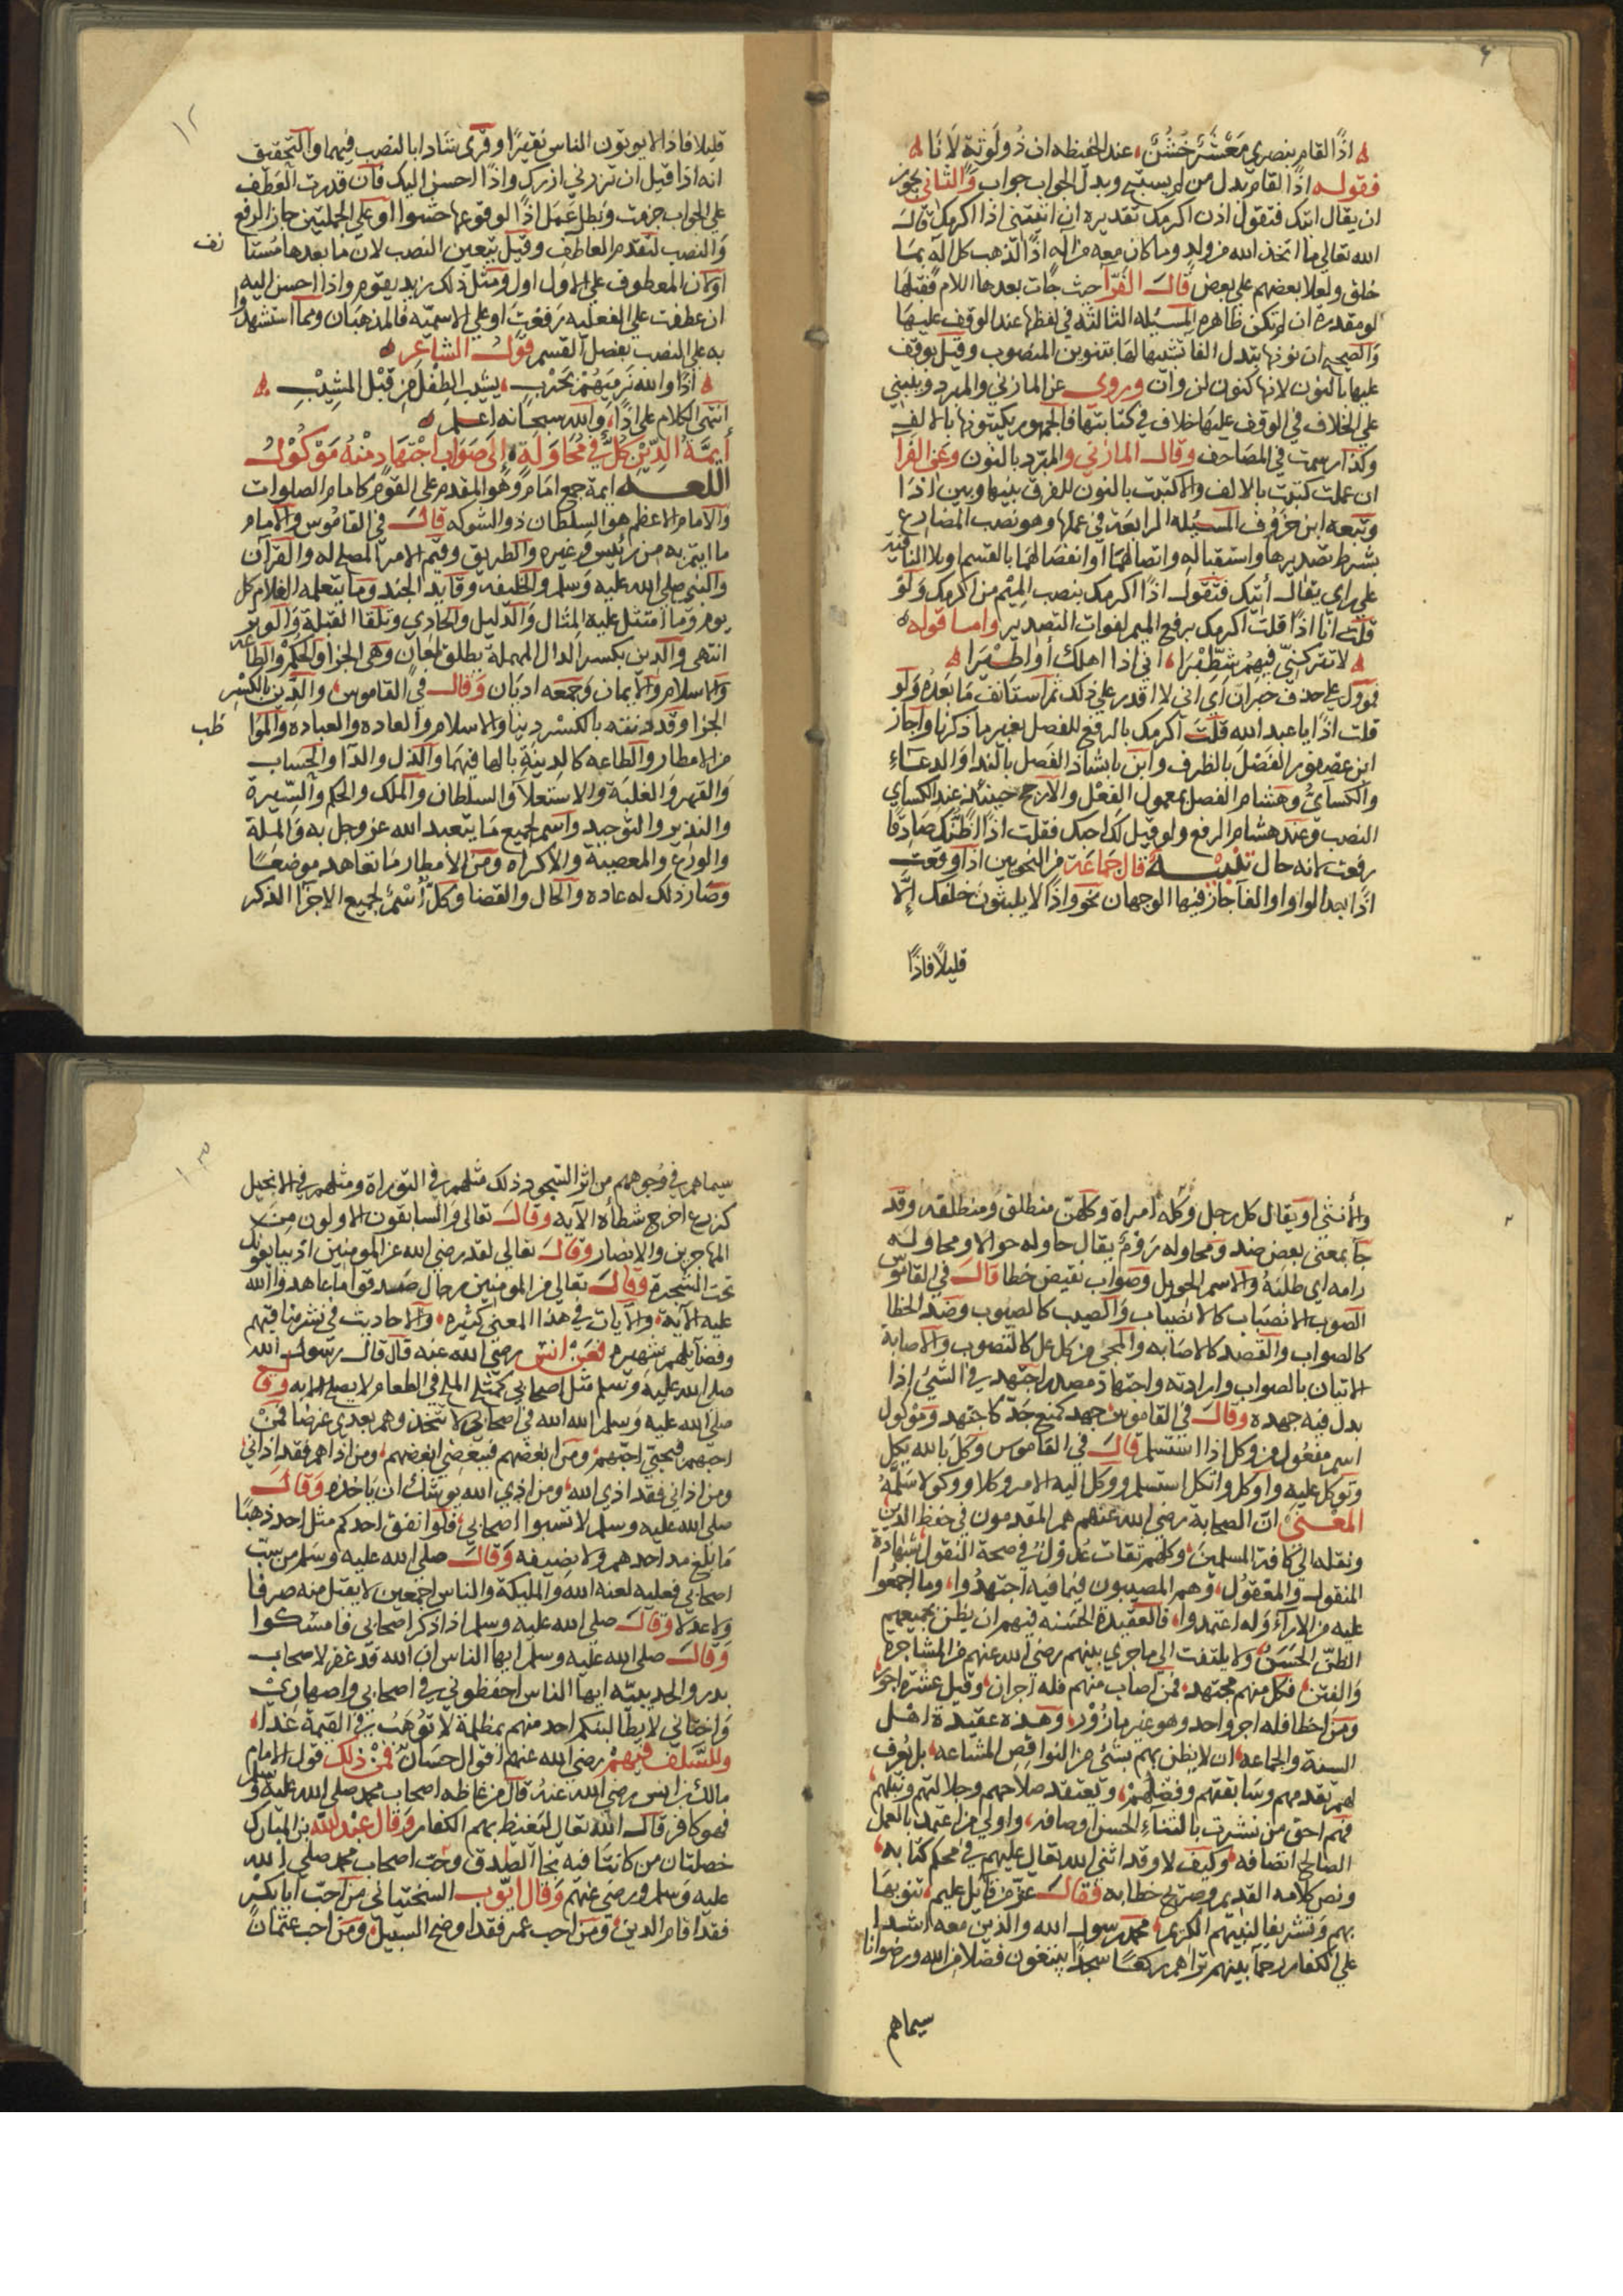 اذًا لقام بنصري مَعْشَرٌ خُشُنٌ عند الحفيظه ان ذُو لَوْثةٍ لَانَا
فقوله اذًا لقام بدل من لم يستبح وبدل الجواب جواب والثاني نحو
ان يقال اتيك فتقول اذن اكرمك تقديره ان اتيتني اذا اكرمك قال
الله تعالي ما اتخذ الله من ولد وما كان معه من اله اذًا لذهب كل اله بما
خلق ولعلا بعضهم علي بعض قال الفرآ حيث جآت بعدها اللام فقبلها
لو مقدره ان لم تكن ظاهره المسئله الثالثه في لفظها عند الوقف عليها
والصحيح ان نونها تبدل الفا تشبيها لها بتنوين المنصوب وقيل يوقف
عليها بالنون لانها كنون لن وان وروي عن المازني والمبرد وينبني
علي الخلاف في الوقف عليها خلاف في كتابتها فالجمهور يكتبونها بالالف
وكذا رسمت في المصاحف وقال المازني والمبرد بالنون وعن الفرآ
ان عملت كتبت بالالف والا كتبت بالنون للفرق بينها وبين اذا
وتبعه ابن خروف المسئله الرابعة في عملها وهو نصب المضارع
بشرط تصديرها واستقباله واتصالهما او انفصالهما بالقسم او بلا النافية
علي راي يقال اتيك فتقول اذًا اكرمك بنصب الميم من اكرمك ولو
قلت انا اذًا قلت اكرمك برفع الميم لفوات التصدير واما قوله
لا تتركنّي فيهم شَطِيْرَا اني اذا اهلك أو اطيرا
فمؤول علي حذف خبر ان اي اني لا اقدر علي ذلك ثم استانف ما بعده ولو
قلت اذًا يا عبد الله قلت اكرمك بالرفع للفصل بغير ما ذكرنا واجاز
ابن عصفور الفصل بالظرف وابن بابشاذ الفصل بالندا والدعاء
والكسائي وهشام الفصل بمعمول الفعل والارجح حينئذ عند الكساي
النصب وعند هشام الرفع ولو قيل لك احبك فقلت اذًا اظنك صادقا
رفعت لانه حال تنبيه قال جماعة من النحويين اذا وقعت
اذًا بعد الواو او الفآ جاز فيها الوجهان نحو واذًا لا يلبثون خلفك إلّا
قليلًا فاذًا
قليلا فاذا لا يوتون الناس نقيرًا وقرئ شاذا بالنصب فيهما والتحقيق
انه اذا قيل ان تزرني ازرك واذًا احسن اليك فان قدرت العطف
علي الجواب جزمت وبطل عمل اذًا لوقوعها حشوا او علي الجملتين جاز الرفع
والنصب لتقدم العاطف وقيل يتعين النصب لان ما بعدها مستأ
نف
او لان المعطوف علي الاول اول ومثل ذلك زيد يقوم واذا احسن اليه
ان عطفت علي الفعليه رفعت او علي الاسميه فالمذهبان ومما استشهدوا
به علي النصب بفصل القسم قول الشاعر
اذًا والله نَرميَهُمْ بحَرْبٍ يشيب الطِفلَ مِن قَبْلِ المشِيْبِ
انتهي الكلام علي اذًا والله سبحانه اعلم
أيمَّةُ الدِّيْنِ كُلٌّ في مُحَاوَلَةٍ إلي صَوَابِ اجْتِهَادٍ مِنْهُ مَوْكُوْلُ
اللغه ايمة جمع امام وهو المقدم علي القوم كامام الصلوات
والامام الاعظم هو السلطان ذو الشوكه قال في القاموس والامام
ما ايتم به من رئيس او غيره والطريق وقيم الامر المصلح له والقرآن
والنبي صلي الله عليه وسلم والخليفه وقايد الجند وما يتعلمه الغلام كل
يوم وما امتثل عليه المثال والدليل والحادي وتلقا القبلة والوتر
انتهي والدين بكسر الدال المهملة يطلق لمعان وهي الجزا والحكم والطاعه
والاسلام والايمان وجمعه اديان وقال في القاموس والدين بالكسر
الجزا وقد دنته بالكسر دينا والاسلام والعادة والعباده والموا
ظب
من الامطار والطاعه كالدينة بالها فيهما والذل والدآ والحساب
والقهر والغلبة والاستعلآ والسلطان والملك والحكم والسيرة
والتدبير والتوحيد واسم لجميع ما يتعبد الله عز وجل به والملة
والورع والمعصية والاكراه ومن الامطار ما تعاهد موضعًا
وصار ذلك له عاده والحال والقضا وكلٌ أسْمٌ لجميع الاجزا الذكر
والأنثي او يقال كل رجل وكله امراة وكلهن منطلق ومنطلقه وقد
جآ بمعني بعض ضد ومحاوله رَوْمٌ يقال حاوله حوالا ومحاولة
رامه اي طلبَهُ والاسم الحويل وصواب نقيض خطا قال في القاموس
الصوب الانصباب كالانصياب والصيب كالصيوب وضد الخطا
كالصواب والقصد كالاصابه والمجئ من كل عل كالتصوب والاصابة
الاتيان بالصواب وارادته واجتهاد مصدر اجتهد في الشيئ اذا
بذل فيه جهده وقال في القاموس جهد كمنع جَدّ كاجتهد وموكول
اسم مفعول من وكل اذا استسلم قال في القاموس وكل بالله يكل
وتوكل عليه واوكل واتكل استسلم ووكل اليه الامر وكلا ووكولا سَلَّمَهُ
المعْني ان الصحابة رضي الله عنهم هم المقدمون في حفظ الدين
ونقله الي كافة المسلمين وكلهم ثقات عُدُولٌ في صحة النقول لشهادة
المنقول والمعقول وهم المصيبون فيما فيه اجتهدوا وما اجمعوا
عليه من الارآء وله اعتمدوا فالعقيدة الحسنه فيهم ان يظن بجميعهم
الظنّ الحَسَنُ ولا يلتفت الي ما جري بينهم رضي الله عنهم من المشاجرة
والفِتَن فكل منهم مجتهد فمن اصاب منهم فله اجران وقيل عشرة اجور
ومن اخطا فله اجر واحد وهو غير مأزُوْر وهذه عقيدة اهل
السنة والجماعه ان لا يظن بهم بشئ من النواقص المشناعه بل يُعرف
لهم تقدمهم وسابقتهم وفضلهم ويعتقد صلاحهم وجلالتهم ونبلهم
فهم احق من نشرت بالثناءِ الحسن اوصافه واولي من اعتمد بالعمل
الصالح اتصافه وكيف لا وقد اثني الله تعال عليهم في محكم كتابه
ونص كلامه القديم وصريح خطابه فقال عز من قايل عليم تنويها
بهم وتشريفا لنبيهم الكريم محمد رسول الله والذين معه اشدا
علي الكفار رحمآ بينهم تراهم ركعًا سجدًا يبتغون فضلا من الله ورضوانا
سيماهم
سيماهم في وُجوههم من اثر السّجود ذلك مثلهم في التوراة ومثلهم في الانجيل
كزرع اخرج شطأه الآيه وقال تعالي والسابقون الاولون من
المهاجرين والانصار وقال تعالي لقد رضي الله عن المومنين اذ يبايعونك
تحت الشجرة وقال تعالي من المومنين رجال صدقوا ما عاهدوا الله
عليه الآية والآيات في هذا المعني كثيره والاحاديث في نشر مناقبهم
وفضآيلهم شهيره فعَنْ انس رضي الله عنه قال قال رسول الله
صلي الله عليه وسلم مثل اصحابي كمثل الملح في الطعام لا يصلح الا به وقال
صلي الله عليه وسلم الله الله في اصحابي لا تتخذوهم بعدي غرضا فمَنْ
احبهم فبحبّي احبّهم ومن ابغضهم فببغضي ابغضهم ومن اذاهم فقد اذاني
ومن اذاني فقد اذي الله ومن اذي الله يوشك ان يَاخذه وقال
صلي الله عليه وسلم لا تسبوا اصحابي فلو انفق احدكم مثل احد ذهبًا
مَا بلغ مد احدهم ولا نصيفه وقال صلي الله عليه وسلم من سبّ
اصحابي فعليه لعنة الله والمليكة والناس اجمعين لا يقبل منه صرفا
ولا عدلا وقال صلي الله عليه وسلم اذا ذكر اصحابي فامسكوا
وقال صلي الله عليه وسلم ايها الناس ان الله قد غفر لاصحاب
بدر والحديبيّه ايها الناس احفظوني في اصحابي واصهاري
واختاني لا يطالبنكم احد منهم بمظلمة لا تُوْهَبُ في القيمة غدا
وللسَّلَف فيهمْ رضي الله عنهم اقوال حسان فمنْ ذلك قول الامام
مالك بن انس رضي الله عنهُ قال من غاظه اصحاب محمد صلي الله عليه وسلم
فهو كافر قال الله تعال ليَغيظ بهم الكفار وقال عبدُ الله بن المبارك
خصلتان من كانتا فيه نجا الصدق وحب اصحاب محمد صلي الله
عليه وسلم ورضي عنهم وقال ايّوب السختياني من احبّ ابا بكر
فقد اقام الدين ومن احب عمر فقد اوضح السبيل ومن احب عثمانَ